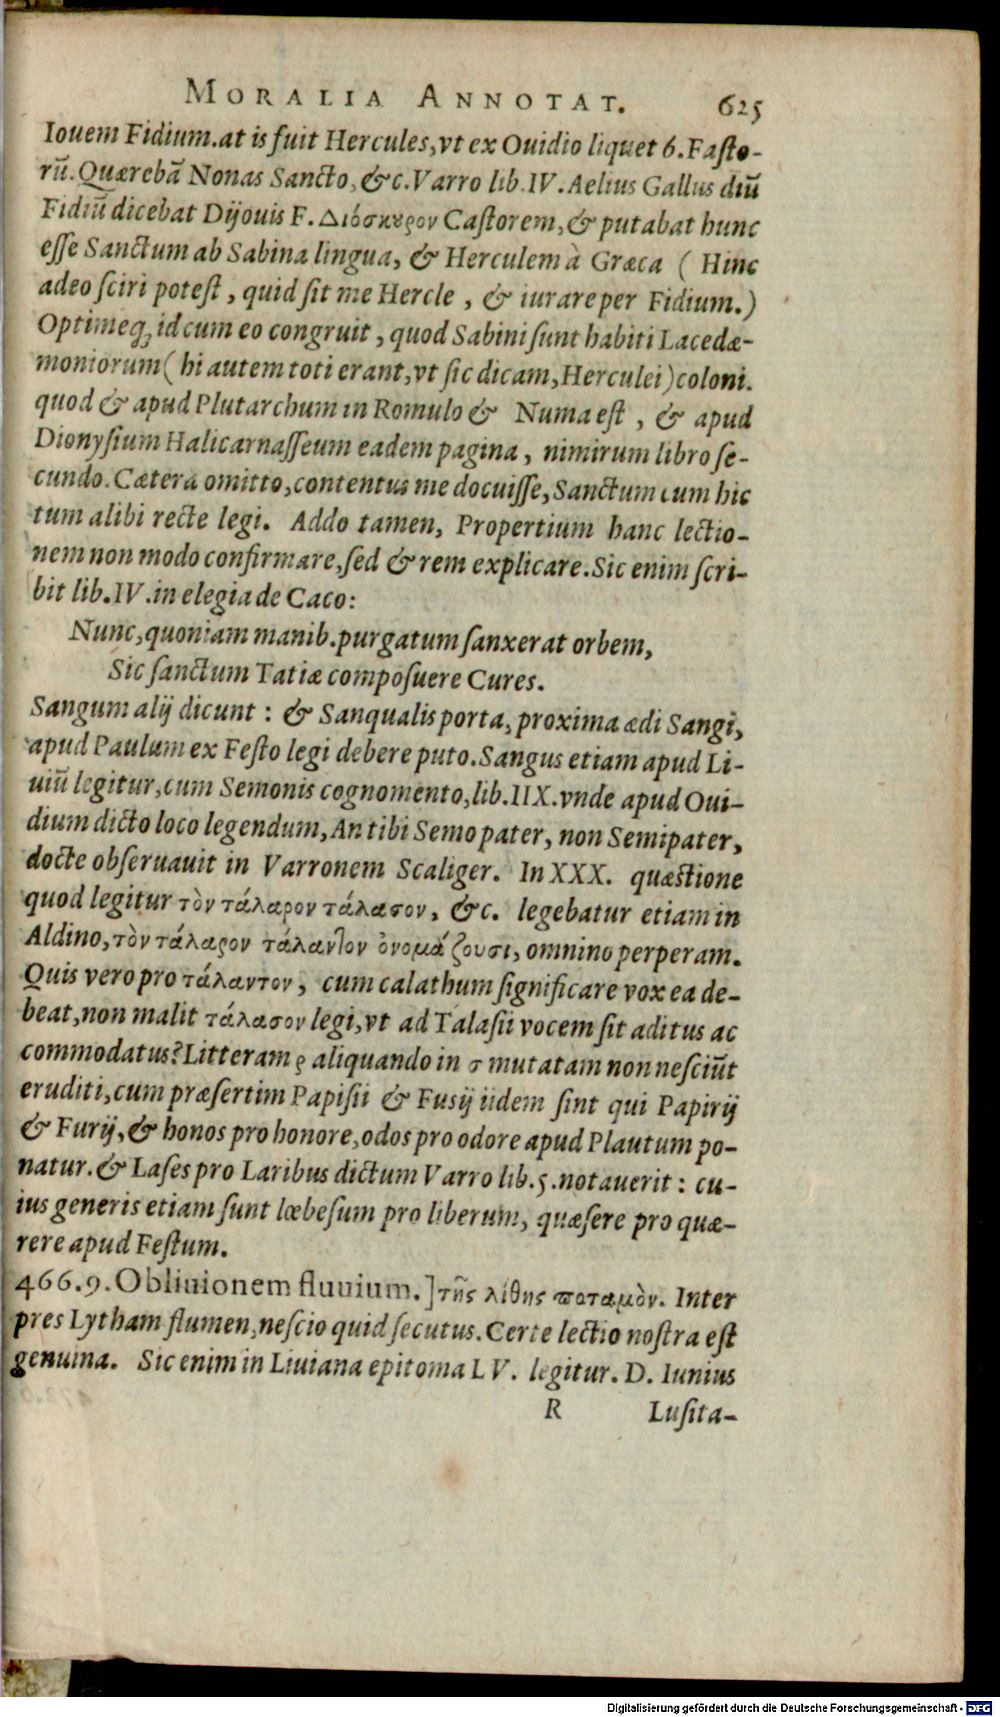 MORALIA ANNOTAT. 625
Iovem Fidium. at is fuit Hercules, vt ex Ouidio liquet 6. Fasto-
rū. Quærebā Nonas Sancto, &c. Varro lib. IV. Aelius Gallus diū
Fidiū dicebat Dijouis F. Διόσκορον Castorem, & putabat hunc
esse Sanctum ab Sabina lingua, & Herculem à Græca ( Hinc
adeo sciri potest, quid sit me Hercle, & iurare per Fidium.)
Optimeq; id cum eo congruit, quod Sabini sunt habiti Lacedæ-
moniorum ( hi autem toti erant, vt sic dicam, Herculei) coloni.
quod & apud Plutarchum in Romulo & Numa est, & apud
Dionysium Halicarnasseum eadem pagina, nimirum libro se-
cundo. Cætera omitto, contentus me docuisse, Sanctum cum hic
tum alibi recte legi. Addo tamen, Propertium hanc lectio-
nem non modo confirmare, sed & rem explicare. Sic enim scri-
bit lib. IV. in elegia de Caco:
Nunc, quoniam manib. purgatum sanxerat orbem,
Sic sanctum Tatiæ composuere Cures.
Sangum alij dicunt : & Sanqualis porta, proxima ædi Sangi,
apud Paulum ex Festo legi debere puto. Sangus etiam apud Li-
uiū legitur, cum Semonis cognomento, lib. IIX. vnde apud Oui-
dium dicto loco legendum, An tibi Semo pater, non Semipater,
docte obseruauit in Varronem Scaliger. In XXX. quæstione
quod legitur τὸν τάλαρον τάλασον, &c. legebatur etiam in
Aldino, τὸν τάλαρον τάλαντον ὀνομάζουσι, omnino perperam.
Quis vero pro τάλαντον, cum calathum significare vox ea de-
beat, non malit τάλασον legi, vt ad Talasii vocem sit aditus ac
commodatus? Litteram ρ aliquando in σ mutatam non nesciūt
eruditi, cum præsertim Papisii & Fusij iidem sint qui Papirij
& Furij, & honos pro honore, odos pro odore apud Plautum po-
natur. & Lases pro Laribus dictum Varro lib. 5. notauerit : cu-
ius generis etiam sunt læbesum pro liberum, quæsere pro quæ-
rere apud Festum.
466.9. Obliuionem fluuium. ] τῆς λίθης ποταμὸν. Inter
pres Lytham flumen, nescio quid secutus. Certe lectio nostra est
genuina. Sic enim in Liuiana epitoma LV. legitur. D. Iunius
R Lusita-
Digitalisierung gefördert durch die Deutsche Forschungsgemeinschaft - DFG